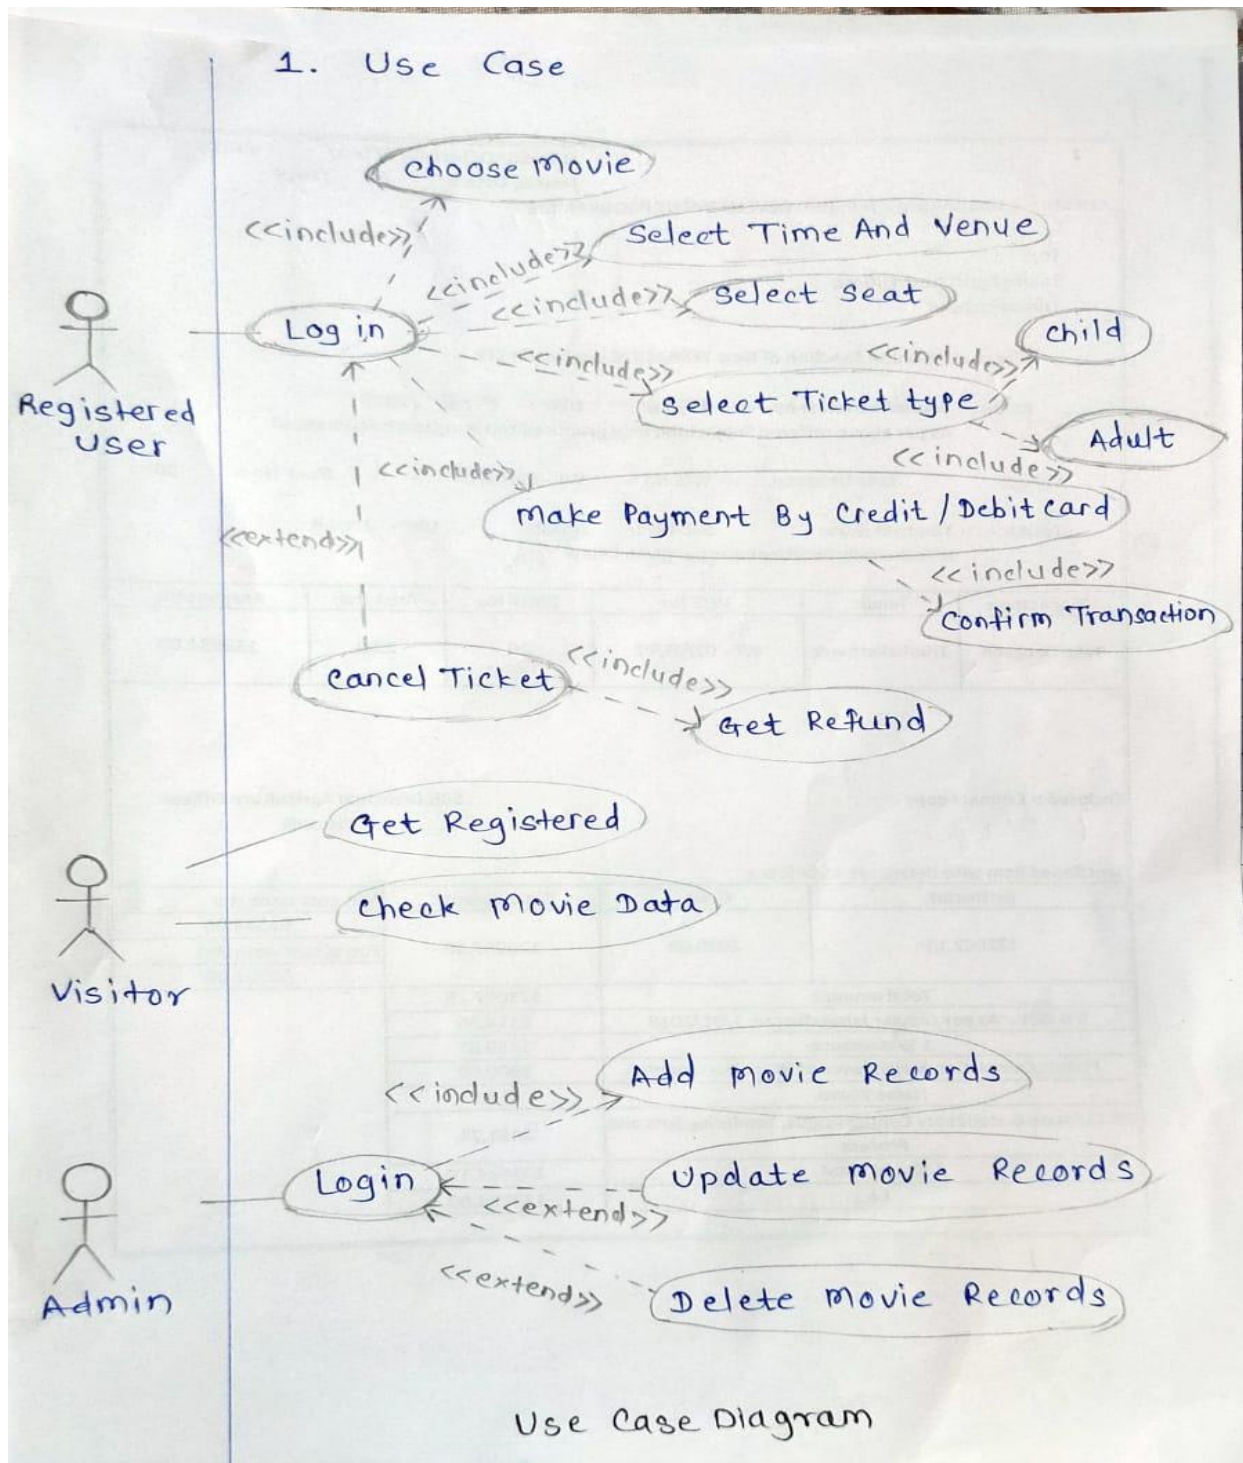 1. Use Case
Choose Movie
<<include>>
Select Time And Venue
<<include>>
Select Seat
<<include>>
Log in
Child
<<include>>
<<include>>
Select Ticket type
Registered
User
Adult
<<include>>
<<include>>
Make Payment By Credit/Debit Card
<<extend>>
<<include>>
Confirm Transaction
Cancel Ticket
<<include>>
Get Refund
Get Registered
Check Movie Data
Visitor
Add Movie Records
<<include>>
Login
Update Movie Records
<<extend>>
<<extend>>
Delete Movie Records
Admin
Use Case Diagram